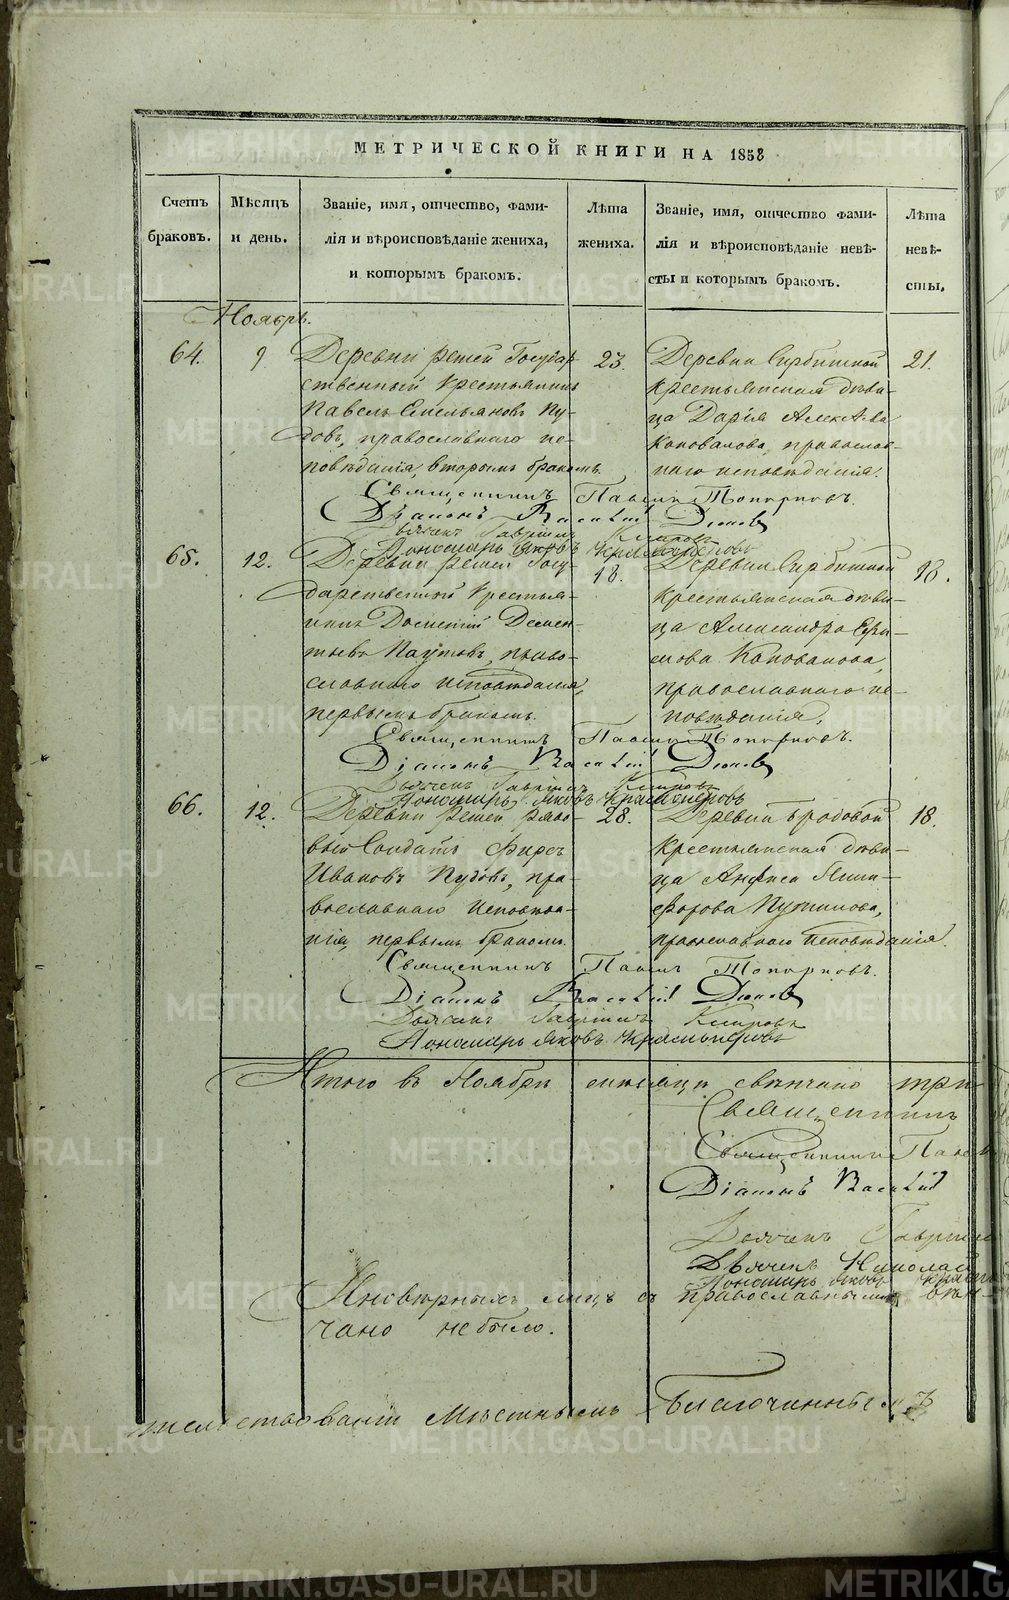 МЕТРИЧЕСКОЙ КНИГИ НА 1858
Счетъ браковъ.
Мѣсяцъ и день.
Званіе, имя, отчество, фами-
лія и вѣроисповѣданіе жениха,
и которымъ бракомъ.
Лѣта жениха.
Званіе, имя, отчество фами-
лія и вѣроисповѣданіе невѣ-
сты и которымъ бракомъ.
Лѣта невѣ-
сты.
Ноябрь.
64.
9
Деревни Режей Государ-
ственный крестьянинъ
Павелъ Емельяновъ Пу-
довъ, православнаго ис-
повѣданія, вторымъ бракомъ.
23.
Деревни Сирбишной
крестьянская дѣви-
ца Дарія Алексѣева
Коновалова, православ-
наго исповѣданія.
21.
Священникъ Павелъ Топорковъ.
Діаконъ Василій
Дьячекъ Гавріилъ
Пономарь Яковъ
65.
12.
Деревни Режей Госу-
дарственный крестья-
нинъ Дометій Демен-
тьевъ Паутовъ, право-
славнаго исповѣданія,
первымъ бракомъ.
18.
Деревни Сирбишной
крестьянская дѣви-
ца Александра Ефи-
мова Коновалова,
православнаго ис-
повѣданія.
18.
Священникъ Павелъ Топорковъ.
Діаконъ Василій
Дьячекъ Гавріилъ
Пономарь Яковъ
66.
12.
Деревни Режей рядо-
вый Солдатъ Фирсъ
Ивановъ Пудовъ, пра-
вославнаго исповѣда-
нія, первымъ бракомъ.
28.
Деревни Бродовой
крестьянская дѣви-
ца Анфиса Ники-
форова Путилова,
православнаго исповѣданія.
18.
Священникъ Павелъ Топорковъ.
Діаконъ Василій
Дьячекъ Гавріилъ
Пономарь Яковъ
Итого въ Ноябрѣ мѣсяцѣ вѣнчано три
Священникъ
Священникъ Павелъ
Діаконъ Василій
Дьячекъ Гавріилъ
Дьячекъ Николай
Пономарь Яковъ
Иновѣрныхъ лицъ съ православными вѣн-
чано небыло.
тельствованъ Мѣстнымъ Благочиннымъ
METRIKI.GASO-URAL.RU